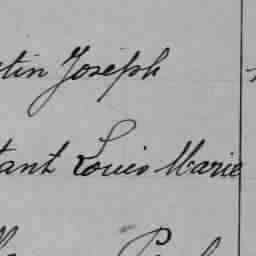 tin Joseph
tant Louis Marie